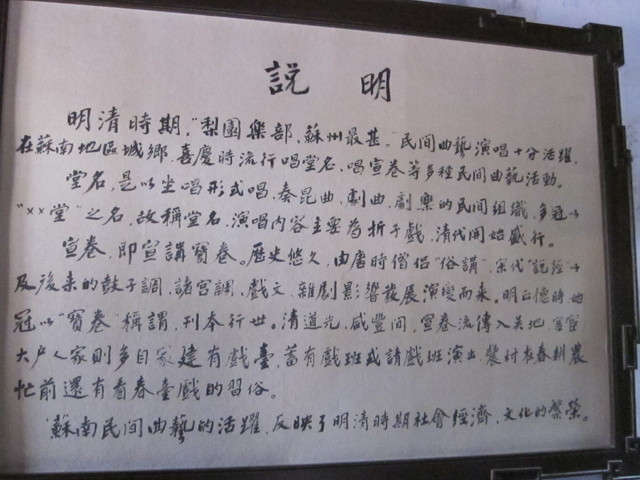 説 明
明清時期，"梨園樂部，蘇州最甚。"民间曲藝演唱十分活躍，
在蘇南地區城鄉，喜慶時流行唱堂名、唱宣卷等多種民间曲藝活動。
堂名，是以坐唱形式唱、奏昆曲、劇曲、劇樂的民间組織，多冠以
"××堂"之名，故稱堂名，演唱内容主要為折子戲，清代開始盛行。
宣卷，即宣講寶卷。歷史悠久，由唐時僧侣"俗講"，宋代"説經"
及後来的鼓子調，諸宮調，戲文，雜劇影響發展演變而来。明正德時始
冠以"寶卷"稱謂，刊本行世。清道光，咸豐间，宣卷流傳入吴地，官宦
大户人家則多自家建有戲臺，蓄有戲班或請戲班演出，農村在春耕農
忙前還有看春臺戲的習俗。
蘇南民间曲藝的活躍，反映了明清時期社會經濟，文化的繁榮。